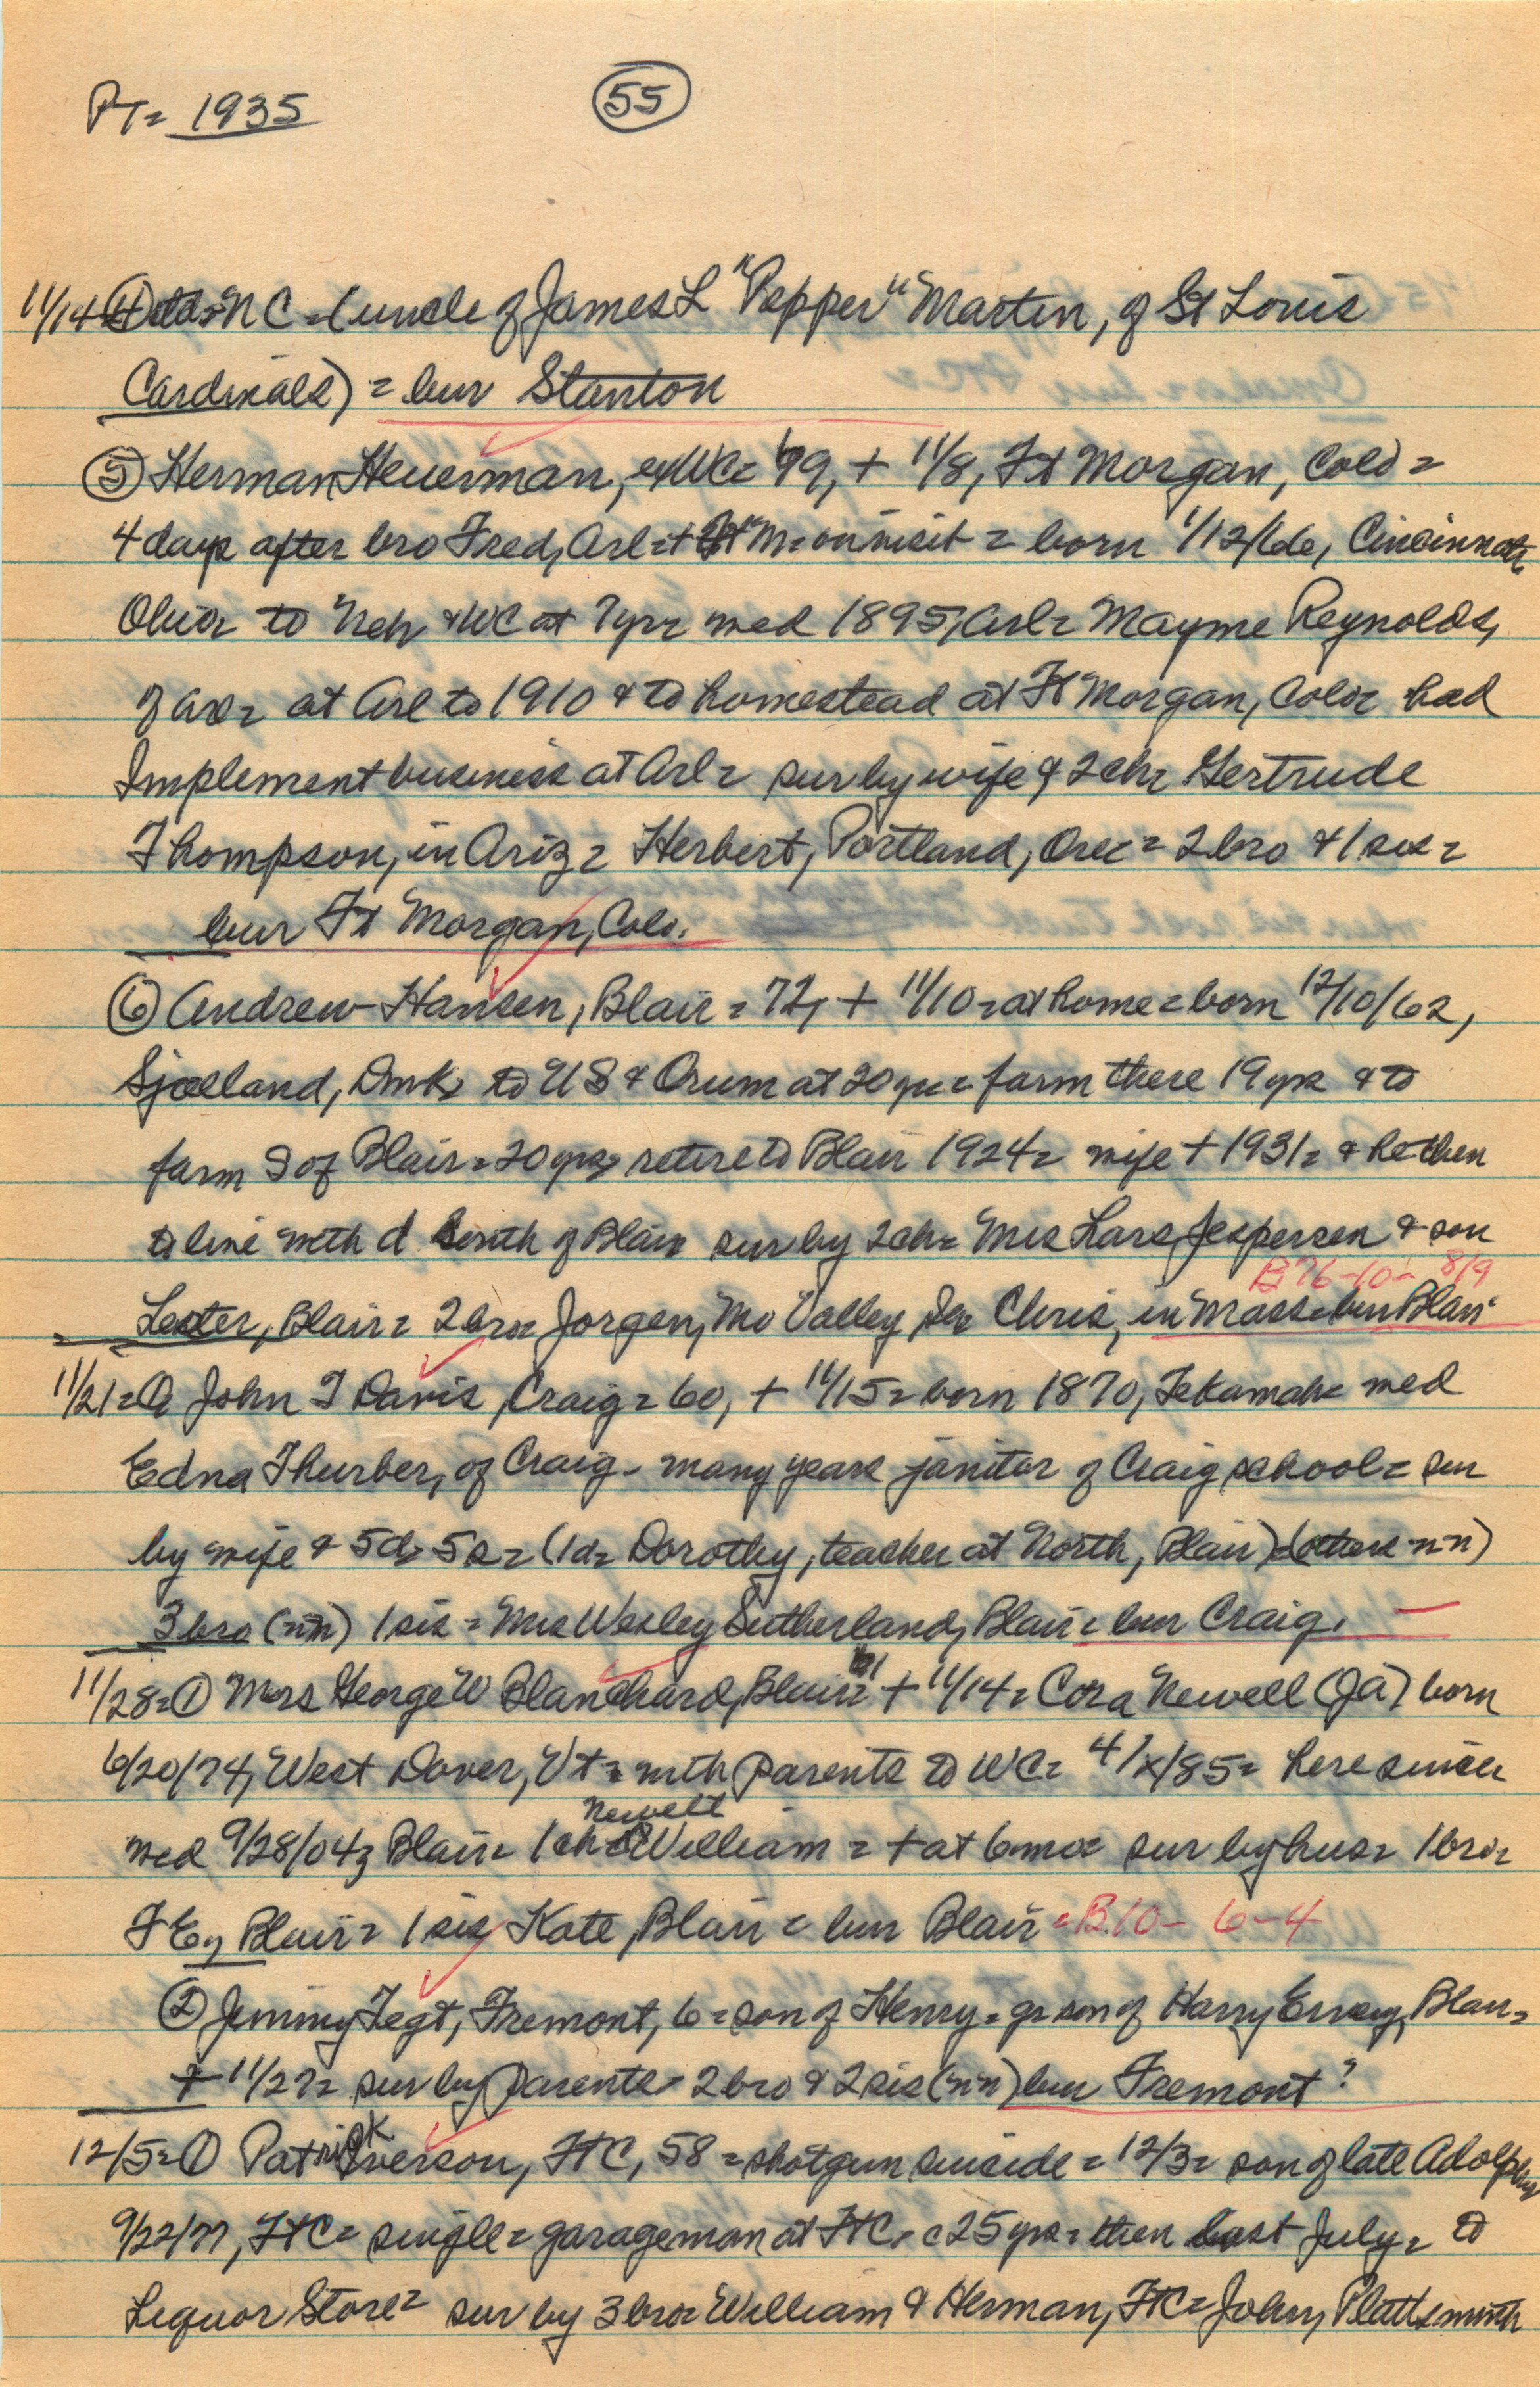 PT= 1935
55
11/14 ④ NC = (uncle of James L "Pepper" Martin, of St Louis
Cardinals) = bur Stanton
⑤ Herman Heuerman, exWC= 69, + 11/8, Ft Morgan, Colo =
4 days after bro Fred, Arl = + Ft M = on visit = born 1/12/66, Cincinnati,
Ohio= to Neb & WC at 7yr= med 1895, Arl= Mayme Reynolds,
of Arl= at Arl to 1910 & to homestead at Ft Morgan, Colo= had
Implement business at Arl= sur by wife & 2ch= Gertrude
Thompson, in Ariz= Herbert, Portland, Ore = 2bro & 1sis=
bur Ft Morgan, Colo.
⑥ Andrew Hansen, Blair = 72, + 11/10 = at home = born 12/10/62,
Sjaelland, Dmk= to US & Orum at 20yr= farm there 19yrs & to
farm S of Blair = 20yrs= retire to Blair 1924= wife + 1931= & he then
to live with d South of Blair sur by 2ch= Mrs Lars Jespersen & son
B 76-10- 8/9
Lester, Blair= 2bro= Jorgen, Mo Valley, Chris, in Mass=bur Blair
11/21=① John T Davis, Craig= 60, + 11/15= born 1870, Tekamah= med
Edna Thurber, of Craig - many years janitor of Craig school= sur
by wife & 5d, 5s= (1d= Dorothy, teacher at North, Blair) (others n n)
3bro (nn) 1sis = Mrs Wesley Sutherland, Blair= bur Craig.
11/28=① Mrs George W Blanchard, Blair= 61 + 11/14= Cora Newell (JA) born
6/20/74, West Dover, Vt = with parents to WC= 4/x/85= here since
Newell
med 9/28/04, Blair= 1ch= William = + at 6mo= sur by hus= 1bro=
F E, Blair= 1sis, Kate, Blair = bur Blair = B.10- 6-4
② Jimmy Tegt, Fremont, 6 = son of Henry = gr son of Harry Ervay, Blair=
+ 11/27= sur by parents 2bro & 2sis (nn) bur Fremont?
12/5=① Patrick Iverson, FtC, 58 = shotgun suicide = 12/3= son of late Adolphus
9/22/77, FtC= single= garageman at FtC, c25yrs= then last July= to
Liquor Store= sur by 3bro= William & Herman, FtC= John, Plattsmouth